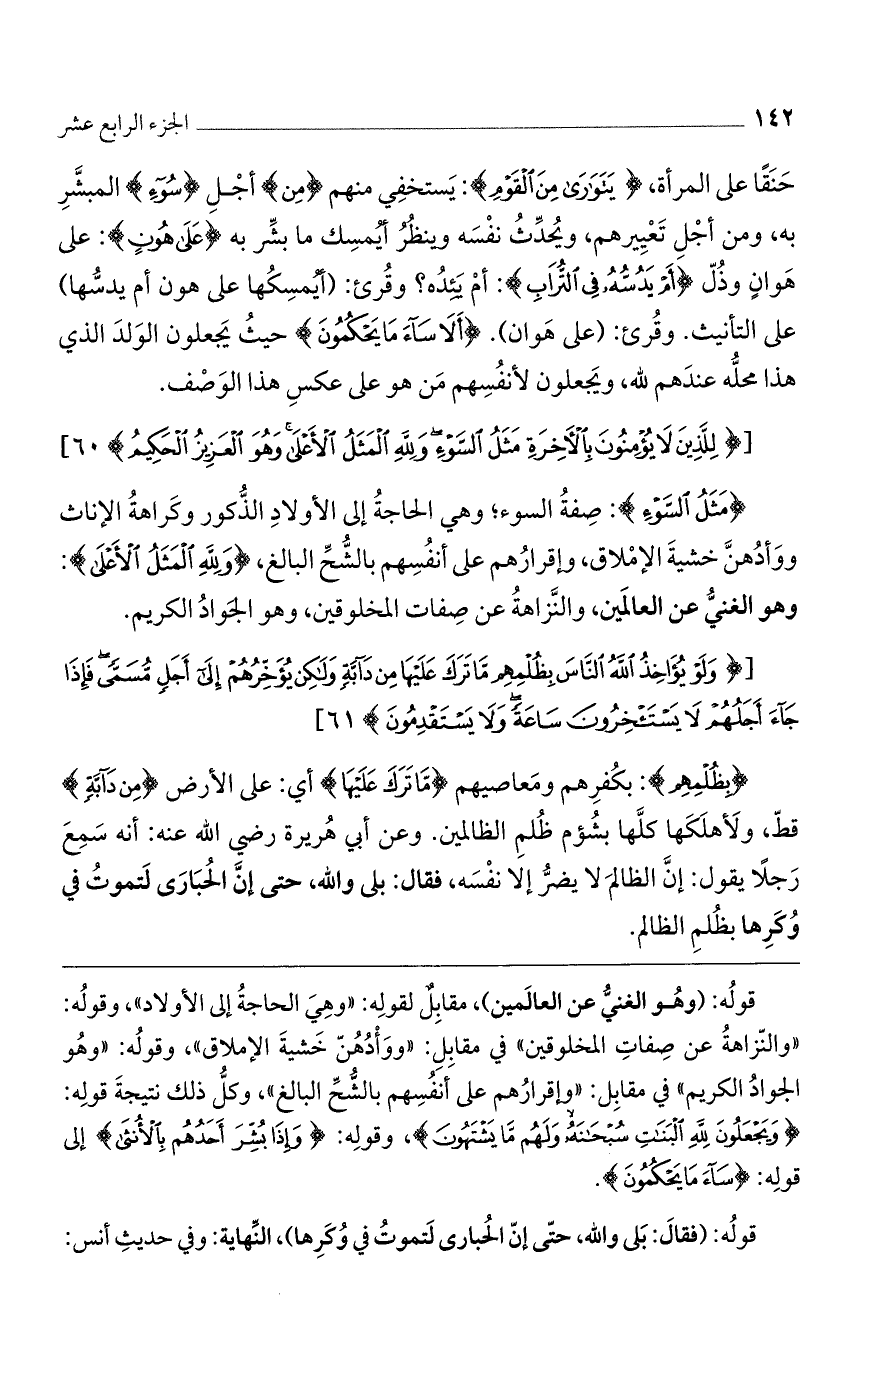 ١٤٢ الجزء الرابع عشر
حَنَقًا على المرأة، ﴿يَتَوَارَىٰ مِنَ ٱلْقَوْمِ﴾: يَستخفِي منهم ﴿مِن﴾ أجْلِ ﴿سُوٓءِ﴾ المبشَّرِ
به، ومن أجْلِ تَعْييرِهم، ويُحدِّثُ نفْسَه وينظُرُ أيُمسِك ما بشِّر به ﴿عَلَىٰ هُونٍ﴾: على
هَوانٍ وذُلّ ﴿أَمْ يَدُسُّهُۥ فِى ٱلتُّرَابِ﴾: أمْ يَئِدُه؟ وقُرئ: (أيُمسِكُها على هون أم يدسُّها)
على التأنيث. وقُرئ: (على هَوان). ﴿أَلَا سَآءَ مَا يَحْكُمُونَ﴾ حيثُ يَجعلون الوَلدَ الذي
هذا محلُّه عندَهم لله، ويَجعلون لأنفُسِهم مَن هو على عكسِ هذا الوَصْف.
[﴿لِلَّذِينَ لَا يُؤْمِنُونَ بِٱلْأَخِرَةِ مَثَلُ ٱلسَّوْءِ ۖ وَلِلَّهِ ٱلْمَثَلُ ٱلْأَعْلَىٰ ۚ وَهُوَ ٱلْعَزِيزُ ٱلْحَكِيمُ﴾ ٦٠]
﴿مَثَلُ ٱلسَّوْءِ﴾: صِفةُ السوء؛ وهي الحاجةُ إلى الأولادِ الذُّكور وكَراهةُ الإناث
ووَأدُهنَّ خشيةَ الإمْلاق، وإقرارُهم على أنفُسِهم بالشُّحِّ البالغ، ﴿وَلِلَّهِ ٱلْمَثَلُ ٱلْأَعْلَىٰ﴾:
وهو الغنيُّ عن العالَمين، والنَّزاهةُ عن صِفات المخلوقين، وهو الجَوادُ الكريم.
[﴿وَلَوْ يُؤَاخِذُ ٱللَّهُ ٱلنَّاسَ بِظُلْمِهِم مَّا تَرَكَ عَلَيْهَا مِن دَآبَّةٍ وَلَٰكِن يُؤَخِّرُهُمْ إِلَىٰٓ أَجَلٍ مُّسَمًّى ۖ فَإِذَا
جَآءَ أَجَلُهُمْ لَا يَسْتَـْٔخِرُونَ سَاعَةً ۖ وَلَا يَسْتَقْدِمُونَ﴾ ٦١]
﴿بِظُلْمِهِم﴾: بكُفرِهم ومَعاصيهم ﴿مَّا تَرَكَ عَلَيْهَا﴾ أي: على الأرض ﴿مِن دَآبَّةٍ﴾
قطّ، ولَأهلَكَها كلَّها بشُؤمِ ظُلمِ الظالمين. وعن أبي هُريرة رضي الله عنه: أنه سَمِعَ
رَجلًا يقول: إنَّ الظالمَ لا يضرُّ إلا نفْسَه، فقال: بلى والله، حتى إنَّ الحُبَارَى لَتموتُ في
وُكَرِها بظُلمِ الظالم.
قولُه: (وهُو الغنيُّ عن العالَمين)، مقابِلٌ لقولِه: «وهِيَ الحاجةُ إلى الأولاد»، وقولُه:
«والنّزاهةُ عن صِفاتِ المخلوقين» في مقابِلِ: «ووَأْدُهُنّ خَشيةَ الإملاق»، وقولُه: «وهُو
الجوادُ الكريم» في مقابل: «وإقرارُهم على أنفُسِهم بالشُّحِّ البالغ»، وكلُّ ذلك نتيجةَ قولِه:
﴿وَيَجْعَلُونَ لِلَّهِ ٱلْبَنَٰتِ سُبْحَٰنَهُۥ ۙ وَلَهُم مَّا يَشْتَهُونَ﴾، وقولِه: ﴿وَإِذَا بُشِّرَ أَحَدُهُم بِٱلْأُنثَىٰ﴾ إلى
قولِه: ﴿سَآءَ مَا يَحْكُمُونَ﴾.
قولُه: (فقالَ: بَلى والله، حتّى إنّ الحُبارى لَتموتُ في وُكَرِها)، النِّهاية: وفي حديثِ أنس: